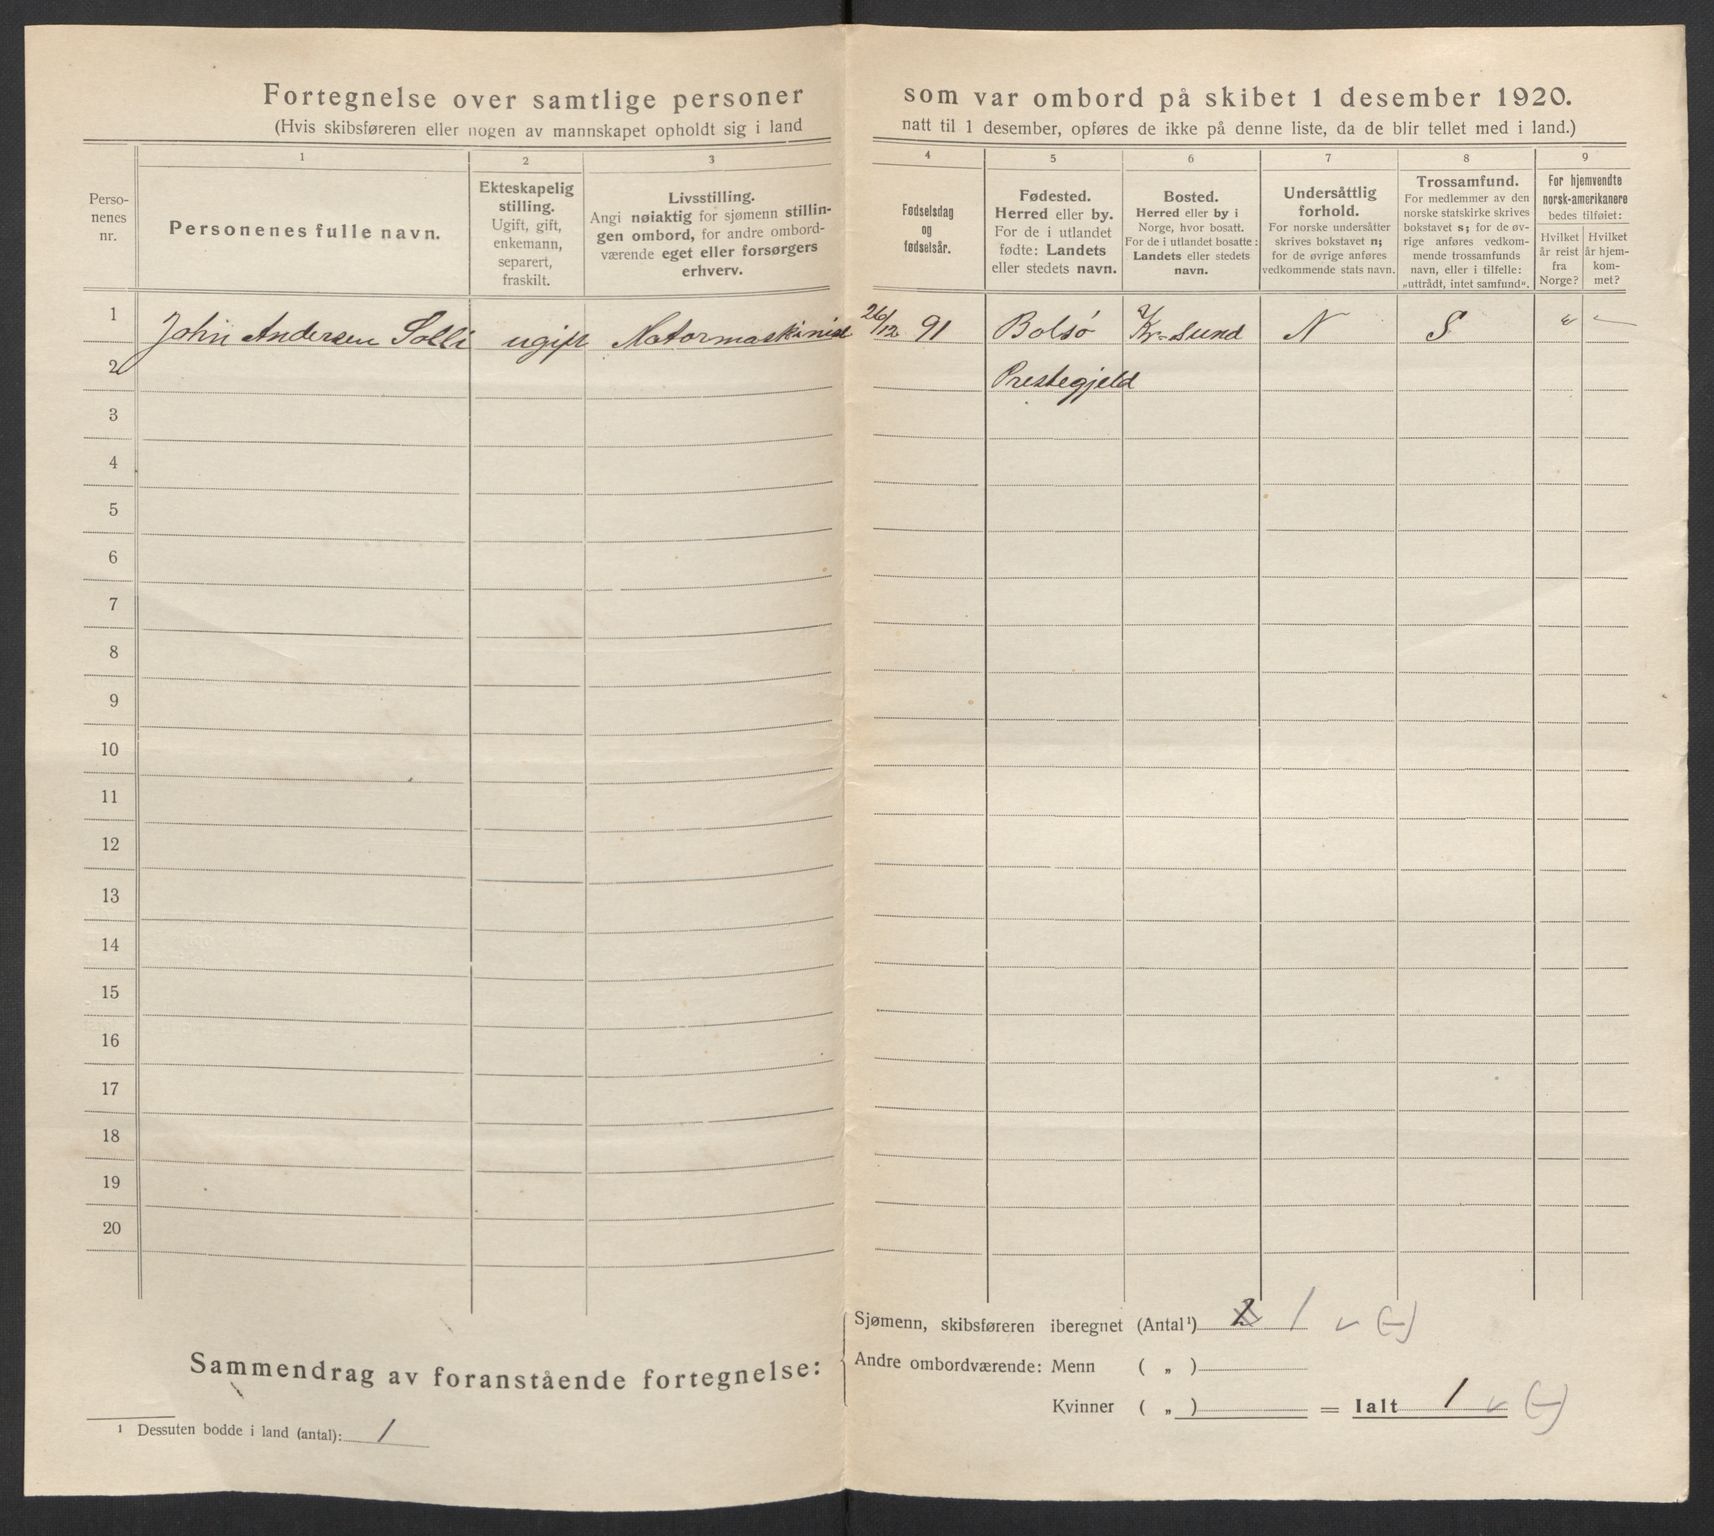 Fortegnelse over samtlige personer som var ombord på skibet 1 desember 1920.
(Hvis skibsføreren eller nogen av mannskapet opholdt sig i land natt til 1 desember, opføres de ikke på denne liste, da de blir tellet med i land.)
Perso-
nenes
nr.
1
Personenes fulle navn.
2
Ekteskapelig
stilling.
Ugift, gift,
enkemann,
separert,
fraskilt.
3
Livsstilling.
Angi nøiaktig for sjømenn stillin-
gen ombord, for andre ombord-
værende eget eller forsørgers
erhverv.
4
Fødselsdag
og
fødselsår.
5
Fødested.
Herred eller by.
For de i utlandet
fødte: Landets
eller stedets navn.
6
Bosted.
Herred eller by i
Norge, hvor bosatt.
For de i utlandet bosatte:
Landets eller stedets
navn.
7
Undersåttlig
forhold.
For norske undersåtter
skrives bokstavet n;
for de øvrige anføres
vedkommende stats navn.
8
Trossamfund.
For medlemmer av den
norske statskirke skrives
bokstavet s; for de øv-
rige anføres vedkom-
mende trossamfunds
navn, eller i tilfelle:
„uttrådt, intet samfund".
9
For hjemvendte
norsk-amerikanere
bedes tilføiet:
Hvilket
år reist
fra
Norge?
Hvilket
år hjem-
kom-
met?
1 John Andersen Solli ugift Motormaskinist 26/12 91 Bolsø Kr-sund N S " –
2 Prestegjeld
3
4
5
6
7
8
9
10
11
12
13
14
15
16
17
18
19
20
Sammendrag av foranstående fortegnelse:
Sjømenn, skibsføreren iberegnet (Antal¹) 2 1 v (–)
Andre ombordværende: Menn ( „ )
Kvinner ( „ ) = Ialt 1 v (–)
¹ Dessuten bodde i land (antal): 1